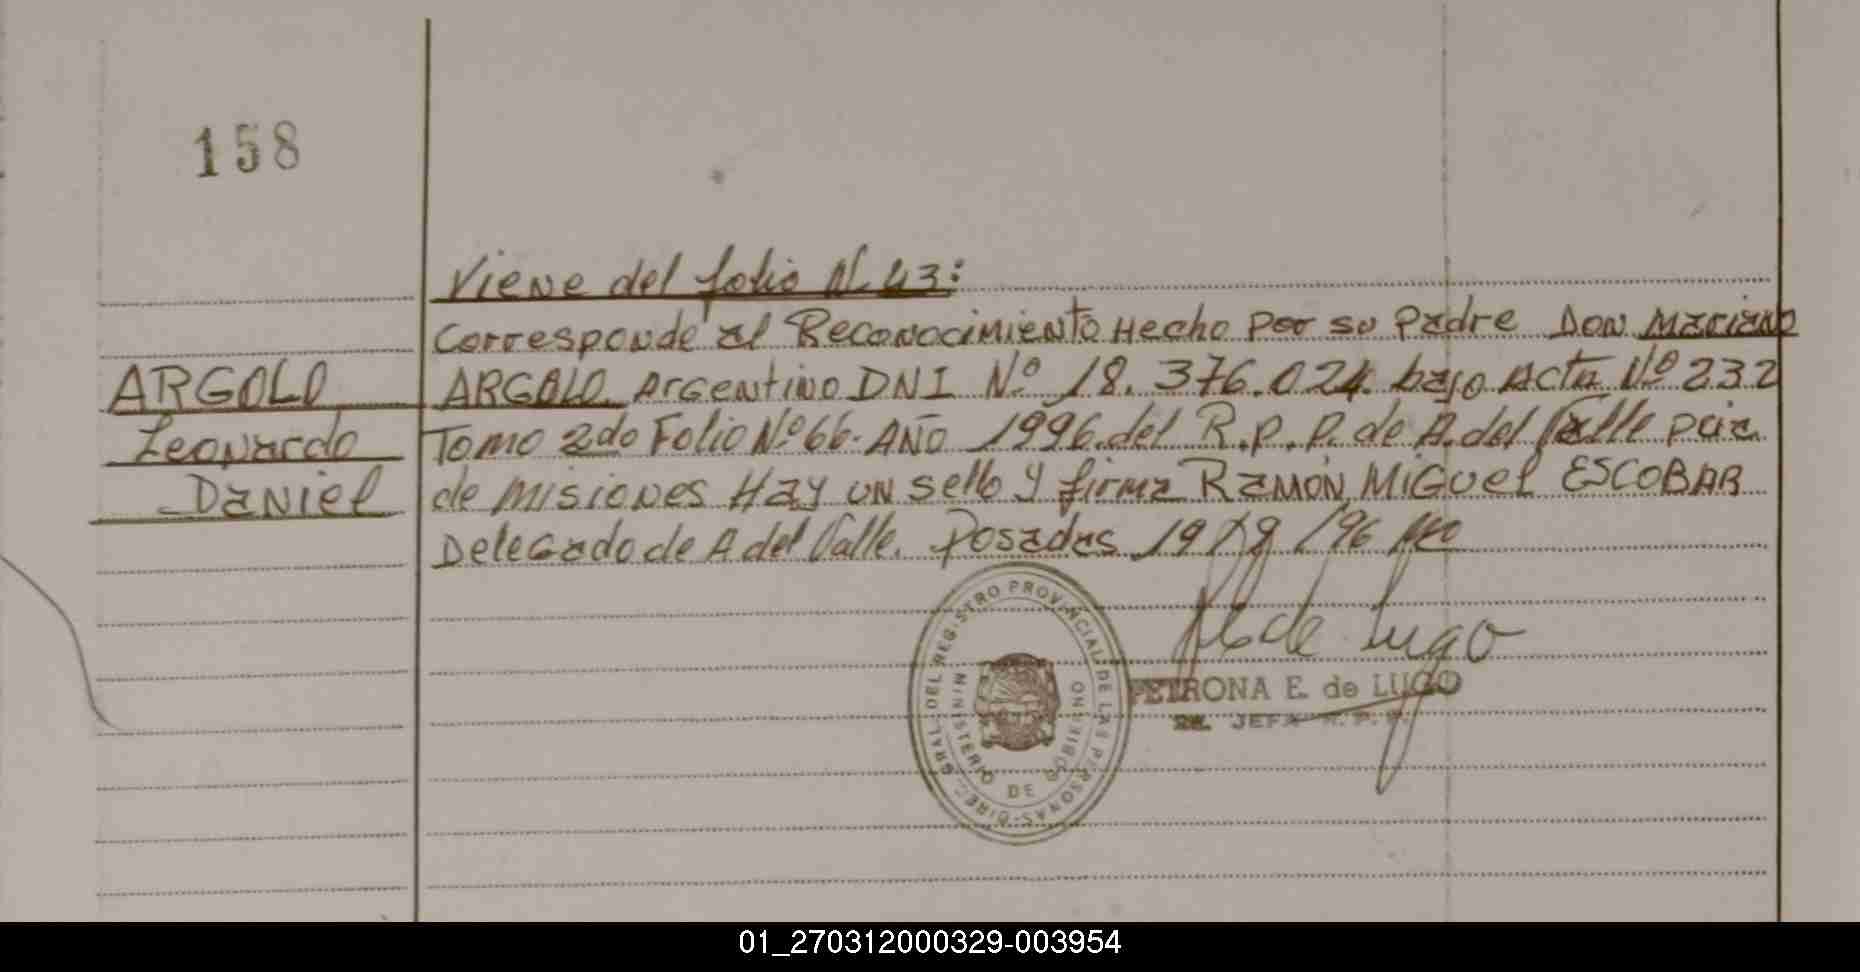 158
Viene del folio N. 43:
Corresponde al Reconocimiento Hecho por su padre Don Mariano
ARGOLO ARGOLO Argentino DNI Nº 18.376.024. bajo Acta Nº 232
Leonardo Tomo 2do Folio Nº 66. AÑO 1996. del R.p.p. de A. del Valle pcia
Daniel de misiones Hay un sello y firma RAMÓN MiGuel ESCOBAR
Delegado de A del Valle. Posadas 19/9/96
de Lugo
DIREC. GRAL. DEL REGISTRO PROVINCIAL DE LAS PERSONAS
MINISTERIO DE GOBIERNO
PETRONA E. de LUGO
JEFA R. P. P.
01_270312000329-003954